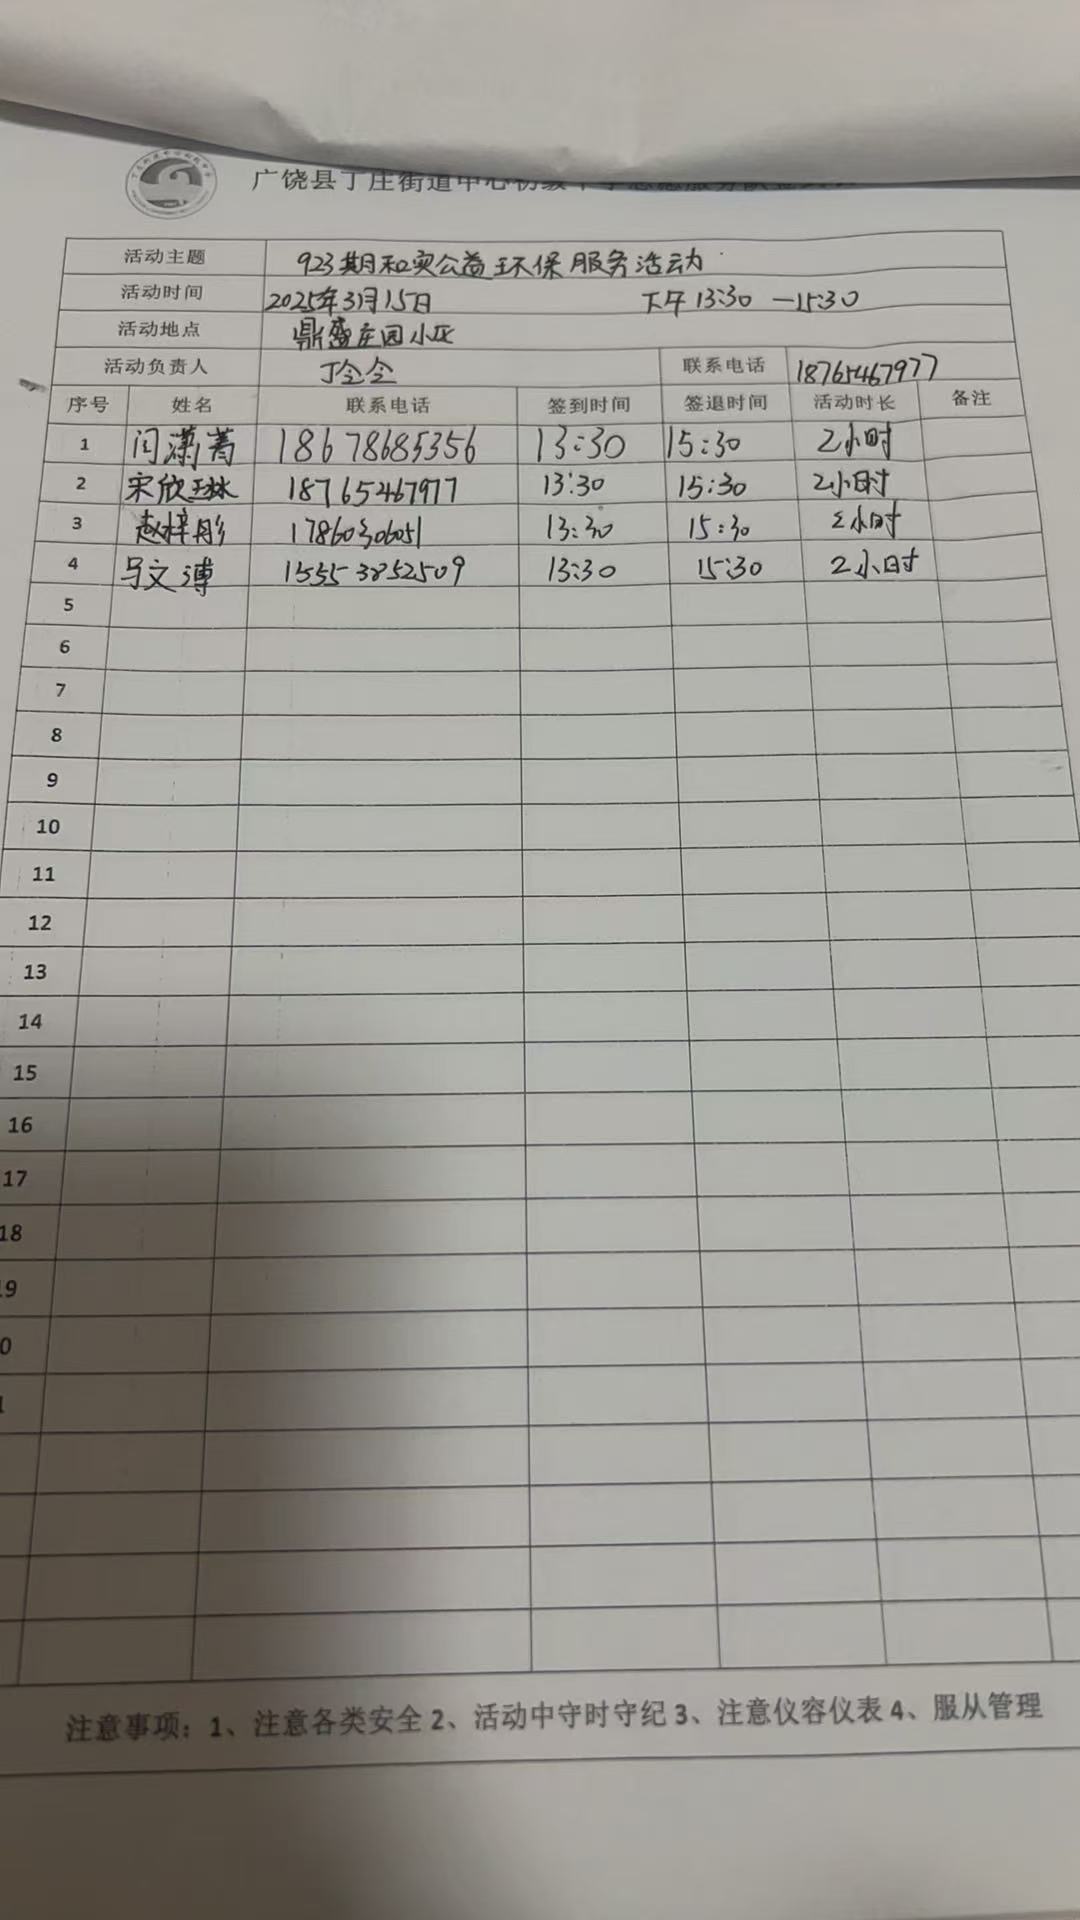 广饶县丁庄街道中心初级中学志愿服务队
活动主题 923期和实公益环保服务活动
活动时间 2025年3月15日 下午13:30 —15:30
活动地点 鼎盛庄园小区
活动负责人 丁全全 联系电话 18765467977
序号 姓名 联系电话 签到时间 签退时间 活动时长 备注
1 闫潇菁 18678685356 13:30 15:30 2小时
2 宋欣琳 18765467977 13:30 15:30 2小时
3 赵梓彤 17860306051 13:30 15:30 2小时
4 马文溥 15553252509 13:30 15:30 2小时
5
6
7
8
9
10
11
12
13
14
15
16
17
18
19
0
1
注意事项：1、注意各类安全 2、活动中守时守纪 3、注意仪容仪表 4、服从管理